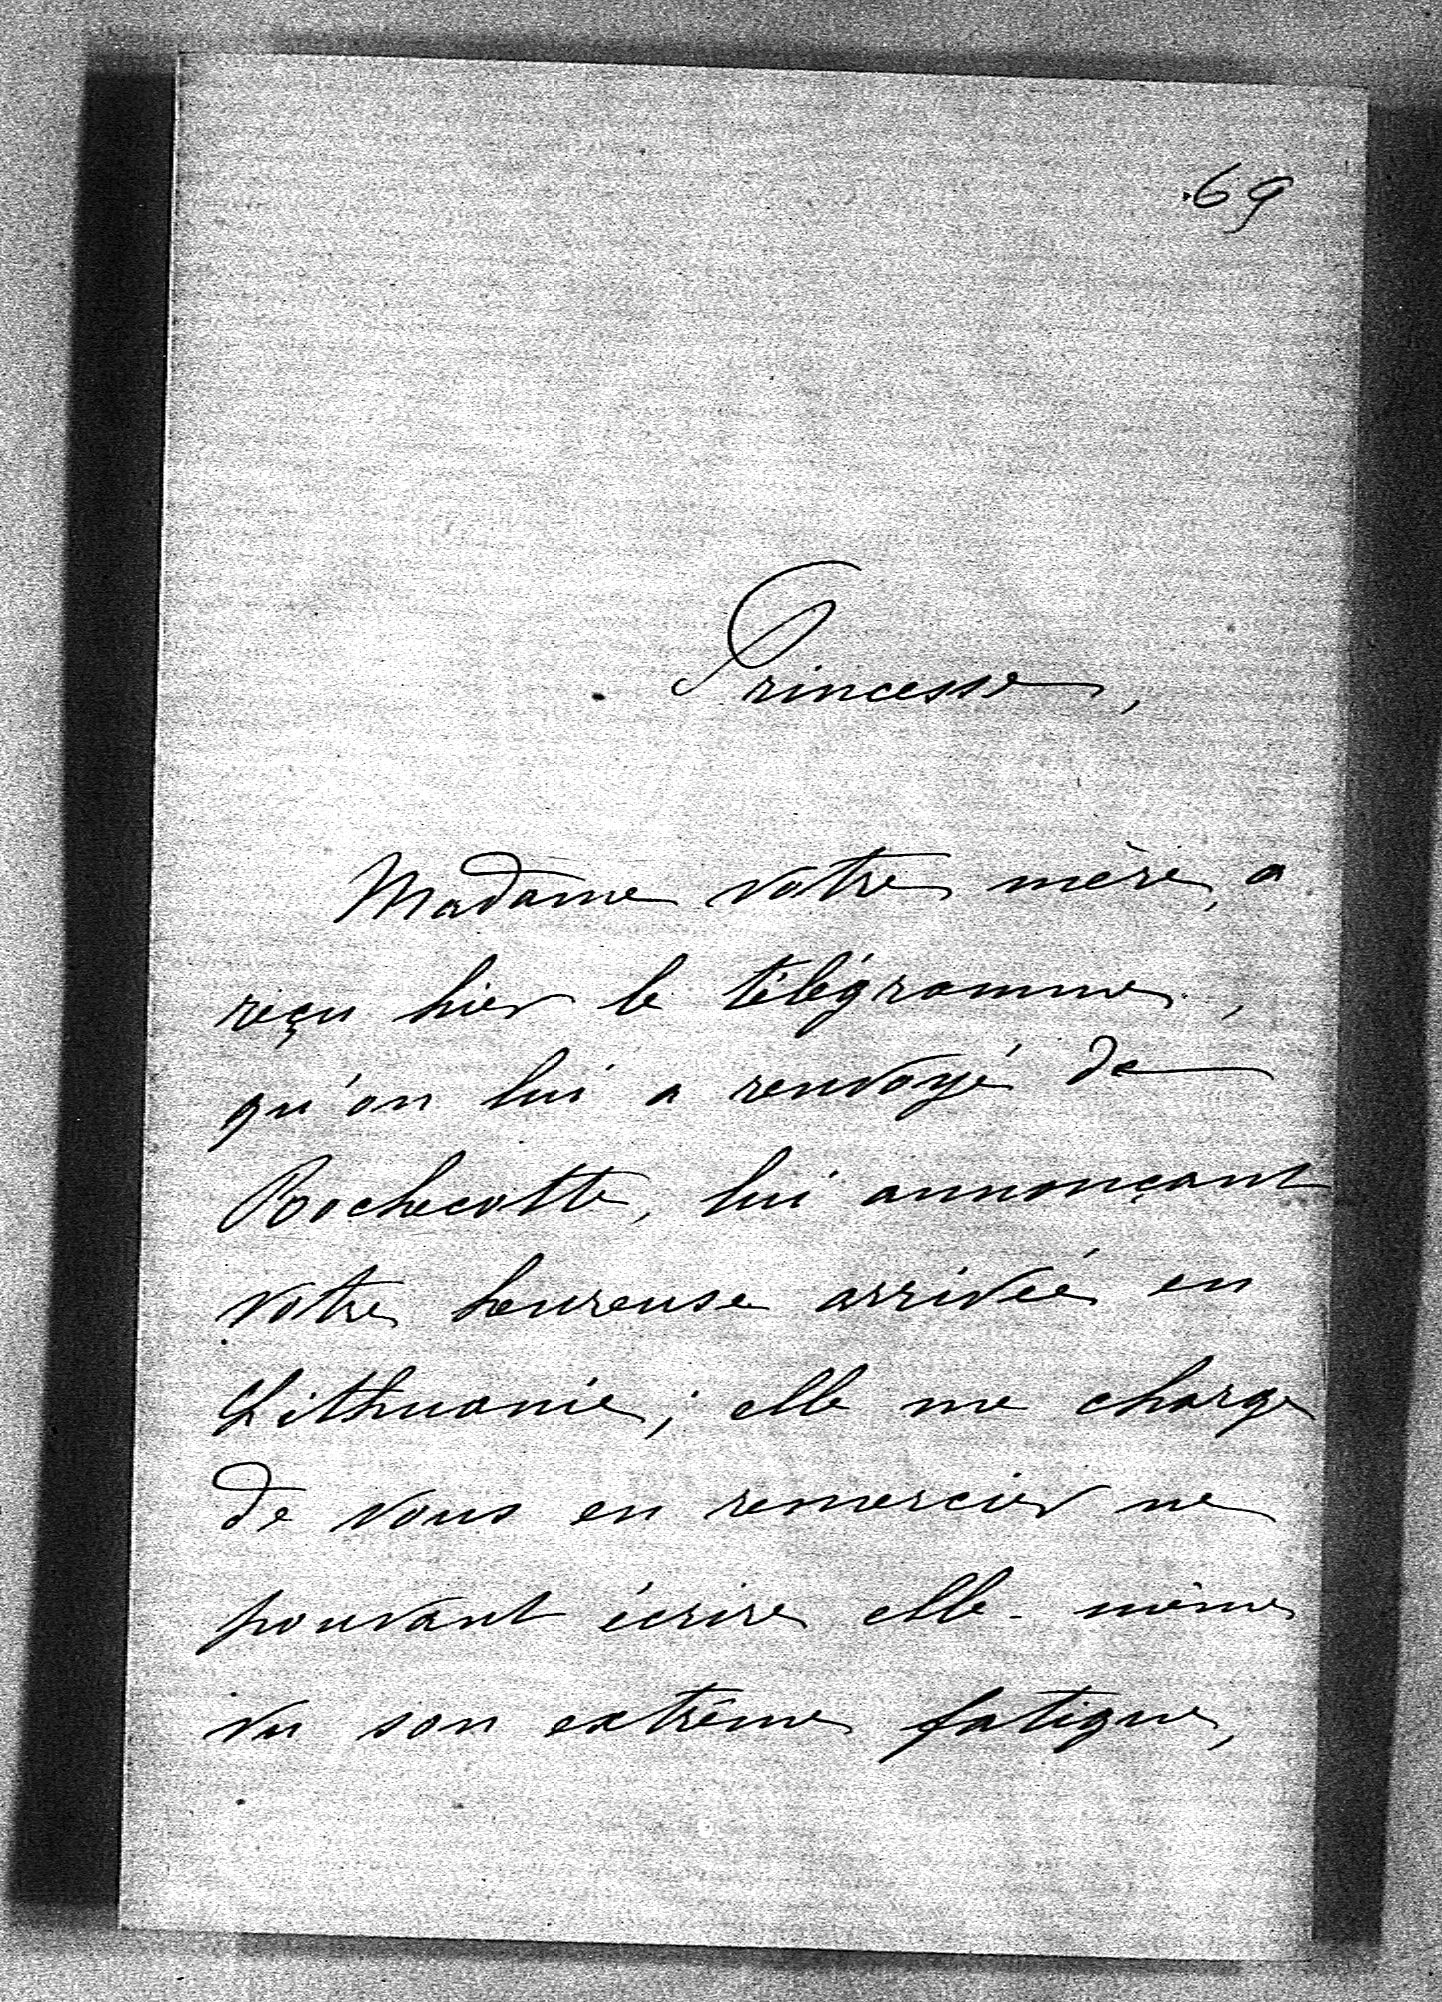 69
Princesse,
Madame votre mère, a
reçu hier le télégramme,
qu'on lui a renvoyé de
Rochecotte, lui annonçant
votre heureuse arrivée en
Lithuanie; elle me charge
de vous en remercier ne
pouvant écrire elle-même
vu son extrême fatigue,